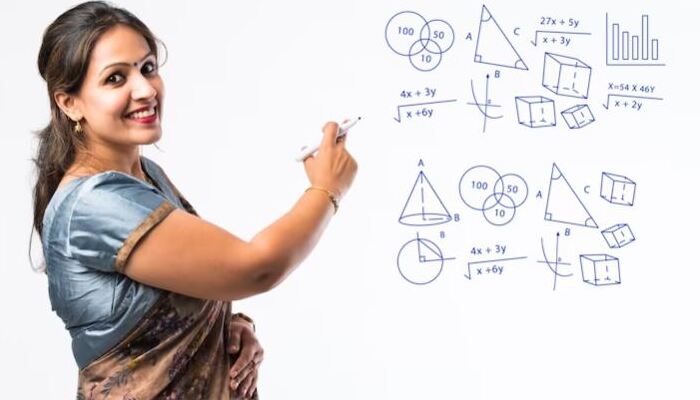 100
50
10
A
C
B
27x + 5y
√ x + 3y
4x + 3y
√ x +6y
B
X=54 X 46Y
√ x + 2y
A
B
100
50
10
A
C
B
B
4x + 3y
√ x +6y
B